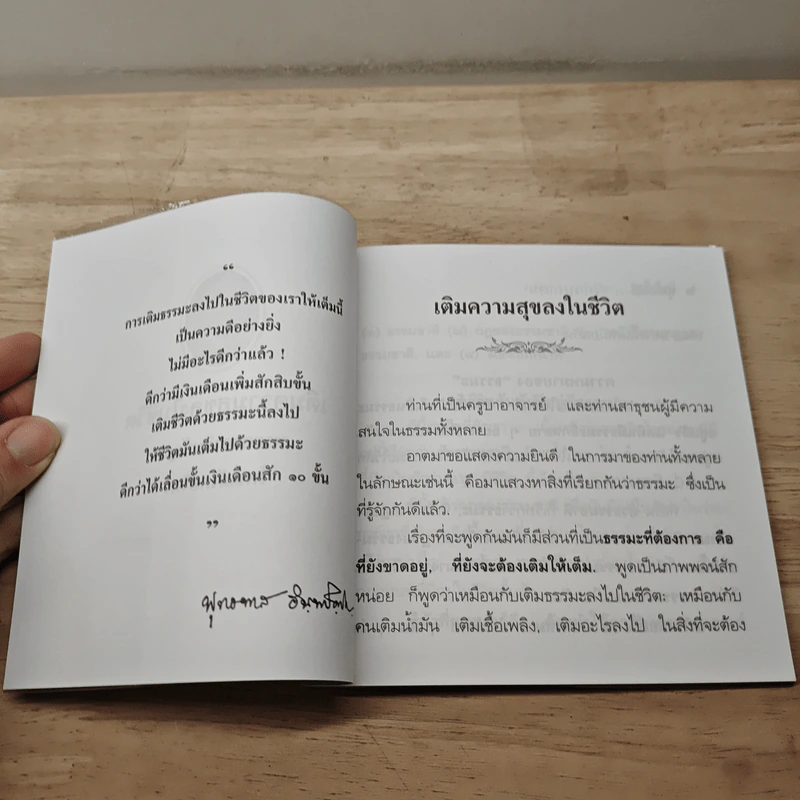 “
การเติมธรรมะลงไปในชีวิตของเราให้เต็มนี้
เป็นความดีอย่างยิ่ง
ไม่มีอะไรดีกว่าแล้ว !
ดีกว่ามีเงินเดือนเพิ่มสักสิบขั้น
เติมชีวิตด้วยธรรมะนี้ลงไป
ให้ชีวิตมันเต็มไปด้วยธรรมะ
ดีกว่าได้เลื่อนขั้นเงินเดือนสัก ๑๐ ขั้น
”
พุทธทาส อินฺทปญฺโญ
เติมความสุขลงในชีวิต
ท่านที่เป็นครูบาอาจารย์ และท่านสาธุชนผู้มีความ
สนใจในธรรมทั้งหลาย
อาตมาขอแสดงความยินดี ในการมาของท่านทั้งหลาย
ในลักษณะเช่นนี้ คือมาแสวงหาสิ่งที่เรียกกันว่าธรรมะ ซึ่งเป็น
ที่รู้จักกันดีแล้ว.
เรื่องที่จะพูดกันมันก็มีส่วนที่เป็นธรรมะที่ต้องการ คือ
ที่ยังขาดอยู่, ที่ยังจะต้องเติมให้เต็ม. พูดเป็นภาพพจน์สัก
หน่อย ก็พูดว่าเหมือนกับเติมธรรมะลงไปในชีวิต: เหมือนกับ
คนเติมน้ำมัน เติมเชื้อเพลิง, เติมอะไรลงไป ในสิ่งที่จะต้อง